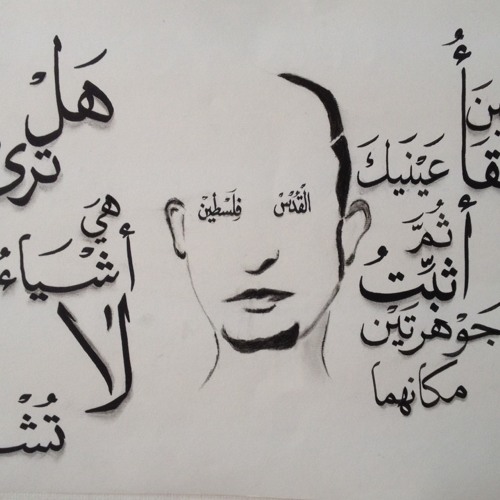 عَيْنَيكَ
ثُمَّ
أثبِّتُ
جَوْهَرتَين
مكانهما
القُدْسُ
فِلَسطِين
هَلْ
ترى
هِيَ
أشْيَاءُ
لا